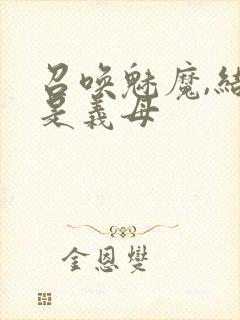 召唤魅魔,结
是義母
金恩燮